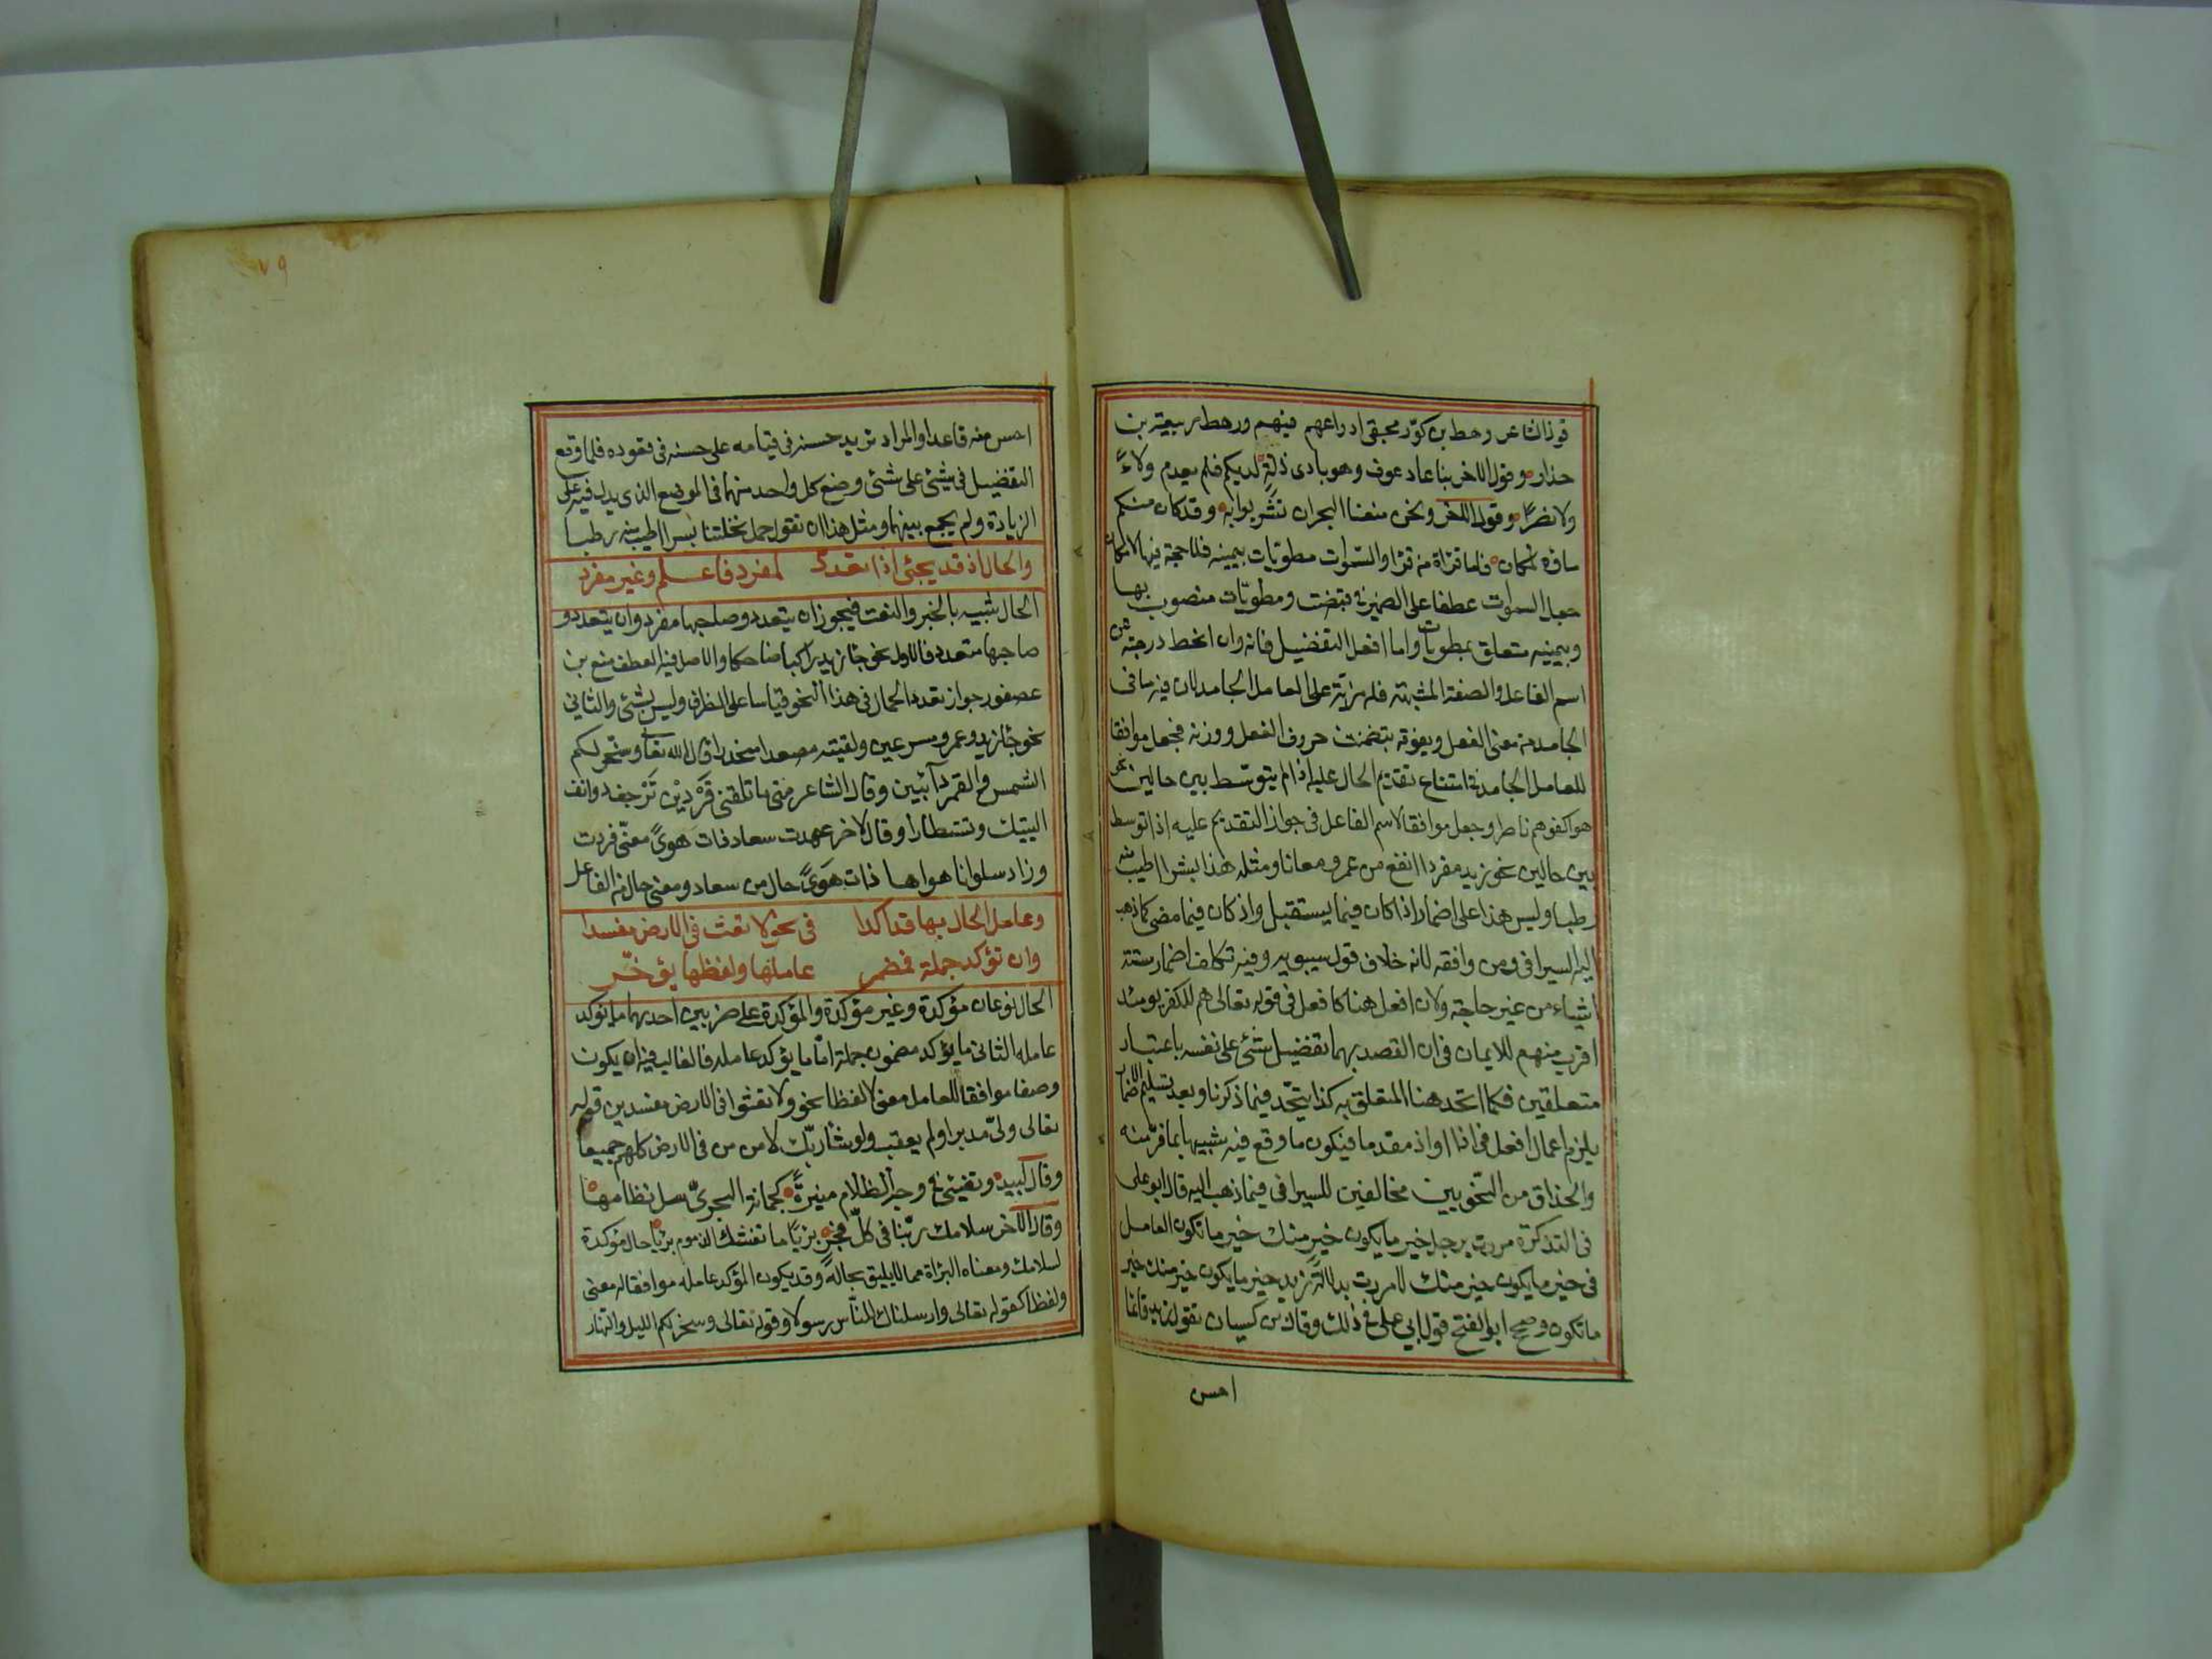 قول الشاعر رهط بن كوز محقبى ادراعهم فيهم ورهط ربيعة بن
حذار وقول الاخر بنا عاد عوف وهو بادى ذلة لديكم فلم يعدم ولاءً
ولا نصرًا وقول الاخر ونحن منعنا البحران تشربوا به وقد كان منكم
ماؤه بمكان فاما قراة من قرا والسموات مطويات بيمينه فلا حجة فيها لامكان
جعل السموات عطفا على الضمير فى قبضت ومطويّات منصوب بها
وبيمينه متعلق بمطويات واما افعل التفضيل فانه وان انحط درجة عن
اسم الفاعل والصفة المشبهة فله مزية على العامل الجامد لان فيه ما فى
الجامد من معنى الفعل ويفوقه بتضمنت حروف الفعل ووزنه فجعل موافقا
للعامل الجامد فى امتناع تقديم الحال عليه اذا لم يتوسّط بين حالين نحو
هو اكفوهم ناصرا وجعل موافقا لاسم الفاعل فى جواز التقديم عليه اذا توسط
بين حالين نحو زيد مفردا انفع من عمرو معانا ومثله هذا بسرا اطيب منه
رطبا وليس هذا على اضمار اذا كان فيما يستقبل واذ كان فيما مضى كما ذهب
اليه السيرافى ومن وافقه لانه خلاف قول سيبويه وفيه تكلف اضمار ستة
اشياء من غير حاجة ولان افعل هنا كافعل فى قوله تعالى هم للكفر يومئذ
اقرب منهم للايمان فى ان القصد بهما تفضيل شئ على نفسه باعتبار
متعلقين فكما اتحد هنا المتعلق به كذا يتحّد فيما ذكرنا وبعد تسليم الاضمار
يلزم اعمال افعل فى اذا او اذ مقدما فيكون ما وقع فيه شبيها بما فرّ منه
والحذاق من النحويين مخالفين للسيرافى فيما ذهب اليه قال ابو على
فى التذكرة مررت برجل خير ما يكون خير منك خير ما تكون العامل
فى خير ما يكون خير منك لا مررت بدلالة زيد خير ما يكون خير منك خير
ما تكون وصحح ابو الفتح قول ابى على فى ذلك وقال بن كسيان تقول زيد قائما
احسن
٧٩
احسن منه قاعدا والمراد تزيد حسنه فى قيامه على حسنه فى قعوده فلما وقع
التفضيل فى شئ على شئ وضع كل واحد منهما فى الموضع الذى يدل فيه على
الزيادة ولم يجمع بينهما ومثل هذا ان تقول حمل نخلتنا بسرا اطيب منه رطبا
والحال اذ قد يجئ اذا تعدد لمفرد فاعلم وغير مفرد
الحال شبيه بالخبر والنعت فيجوز ان يتعدد وصاحبها مفرد وان يتعدد و
صاحبها متعدد فالاول نحو جاء زيد راكبا ضاحكا والاصل فيه العطف منع بن
عصفور جواز تعدد الحال فى هذا النحو قياسا على الظرف وليس بشئ والثانى
نحو جاء زيد وعمرو مسرعين ولقيته مصعدا منحدرا قال الله تعا وسخر لكم
الشمس والقمر دآئبين وقال الشاعر متى ما تلقنى فَرْدَيْن تَرْجف روانف
اليتيك وتستطارا وقال الاخر عهدت سعاد ذات هوىً معنّى فزدت
وزاد سلوانا هواها ذات هَوىً حال من سعاد ومعنى حال من الفاعل
وعامل الحال بها قد اكدا فى نحو لا تعث فى الارض مفسدا
وان تؤكد جملة فمضمر عاملها ولفظها يؤخّر
الحال نوعان مؤكدة وغير مؤكدة والمؤكدة على ضربين احدهما ما يؤكد
عامله الثانى ما يؤكد مضمون جملة امّا ما يؤكد عامله فالغالب فيه ان يكون
وصفا موافقا للعامل معنى لا لفظا نحو ولا تعثوا فى الارض مفسدين قوله
تعالى ولىّ مدبرا ولم يعقب ولو شاء ربّك لامن من فى الارض كلهم جميعا
وقال لبيد وتضيئ فى وجه الظلام منيرةً كجمانة البحرىّ سل نظامها
وقال الآخر سلامك ربّنا فى كلّ فجر بريًا ما تغنثك الذموم بريًا حال مؤكدة
لسلامك ومعناه البراة مما لا يليق بجاله وقد يكون المؤكد عامله موافقا له معنى
ولفظا كقوله تعالى وارسلناك للنّاس رسولا وقوله تعالى وسخر لكم الليل والنهار